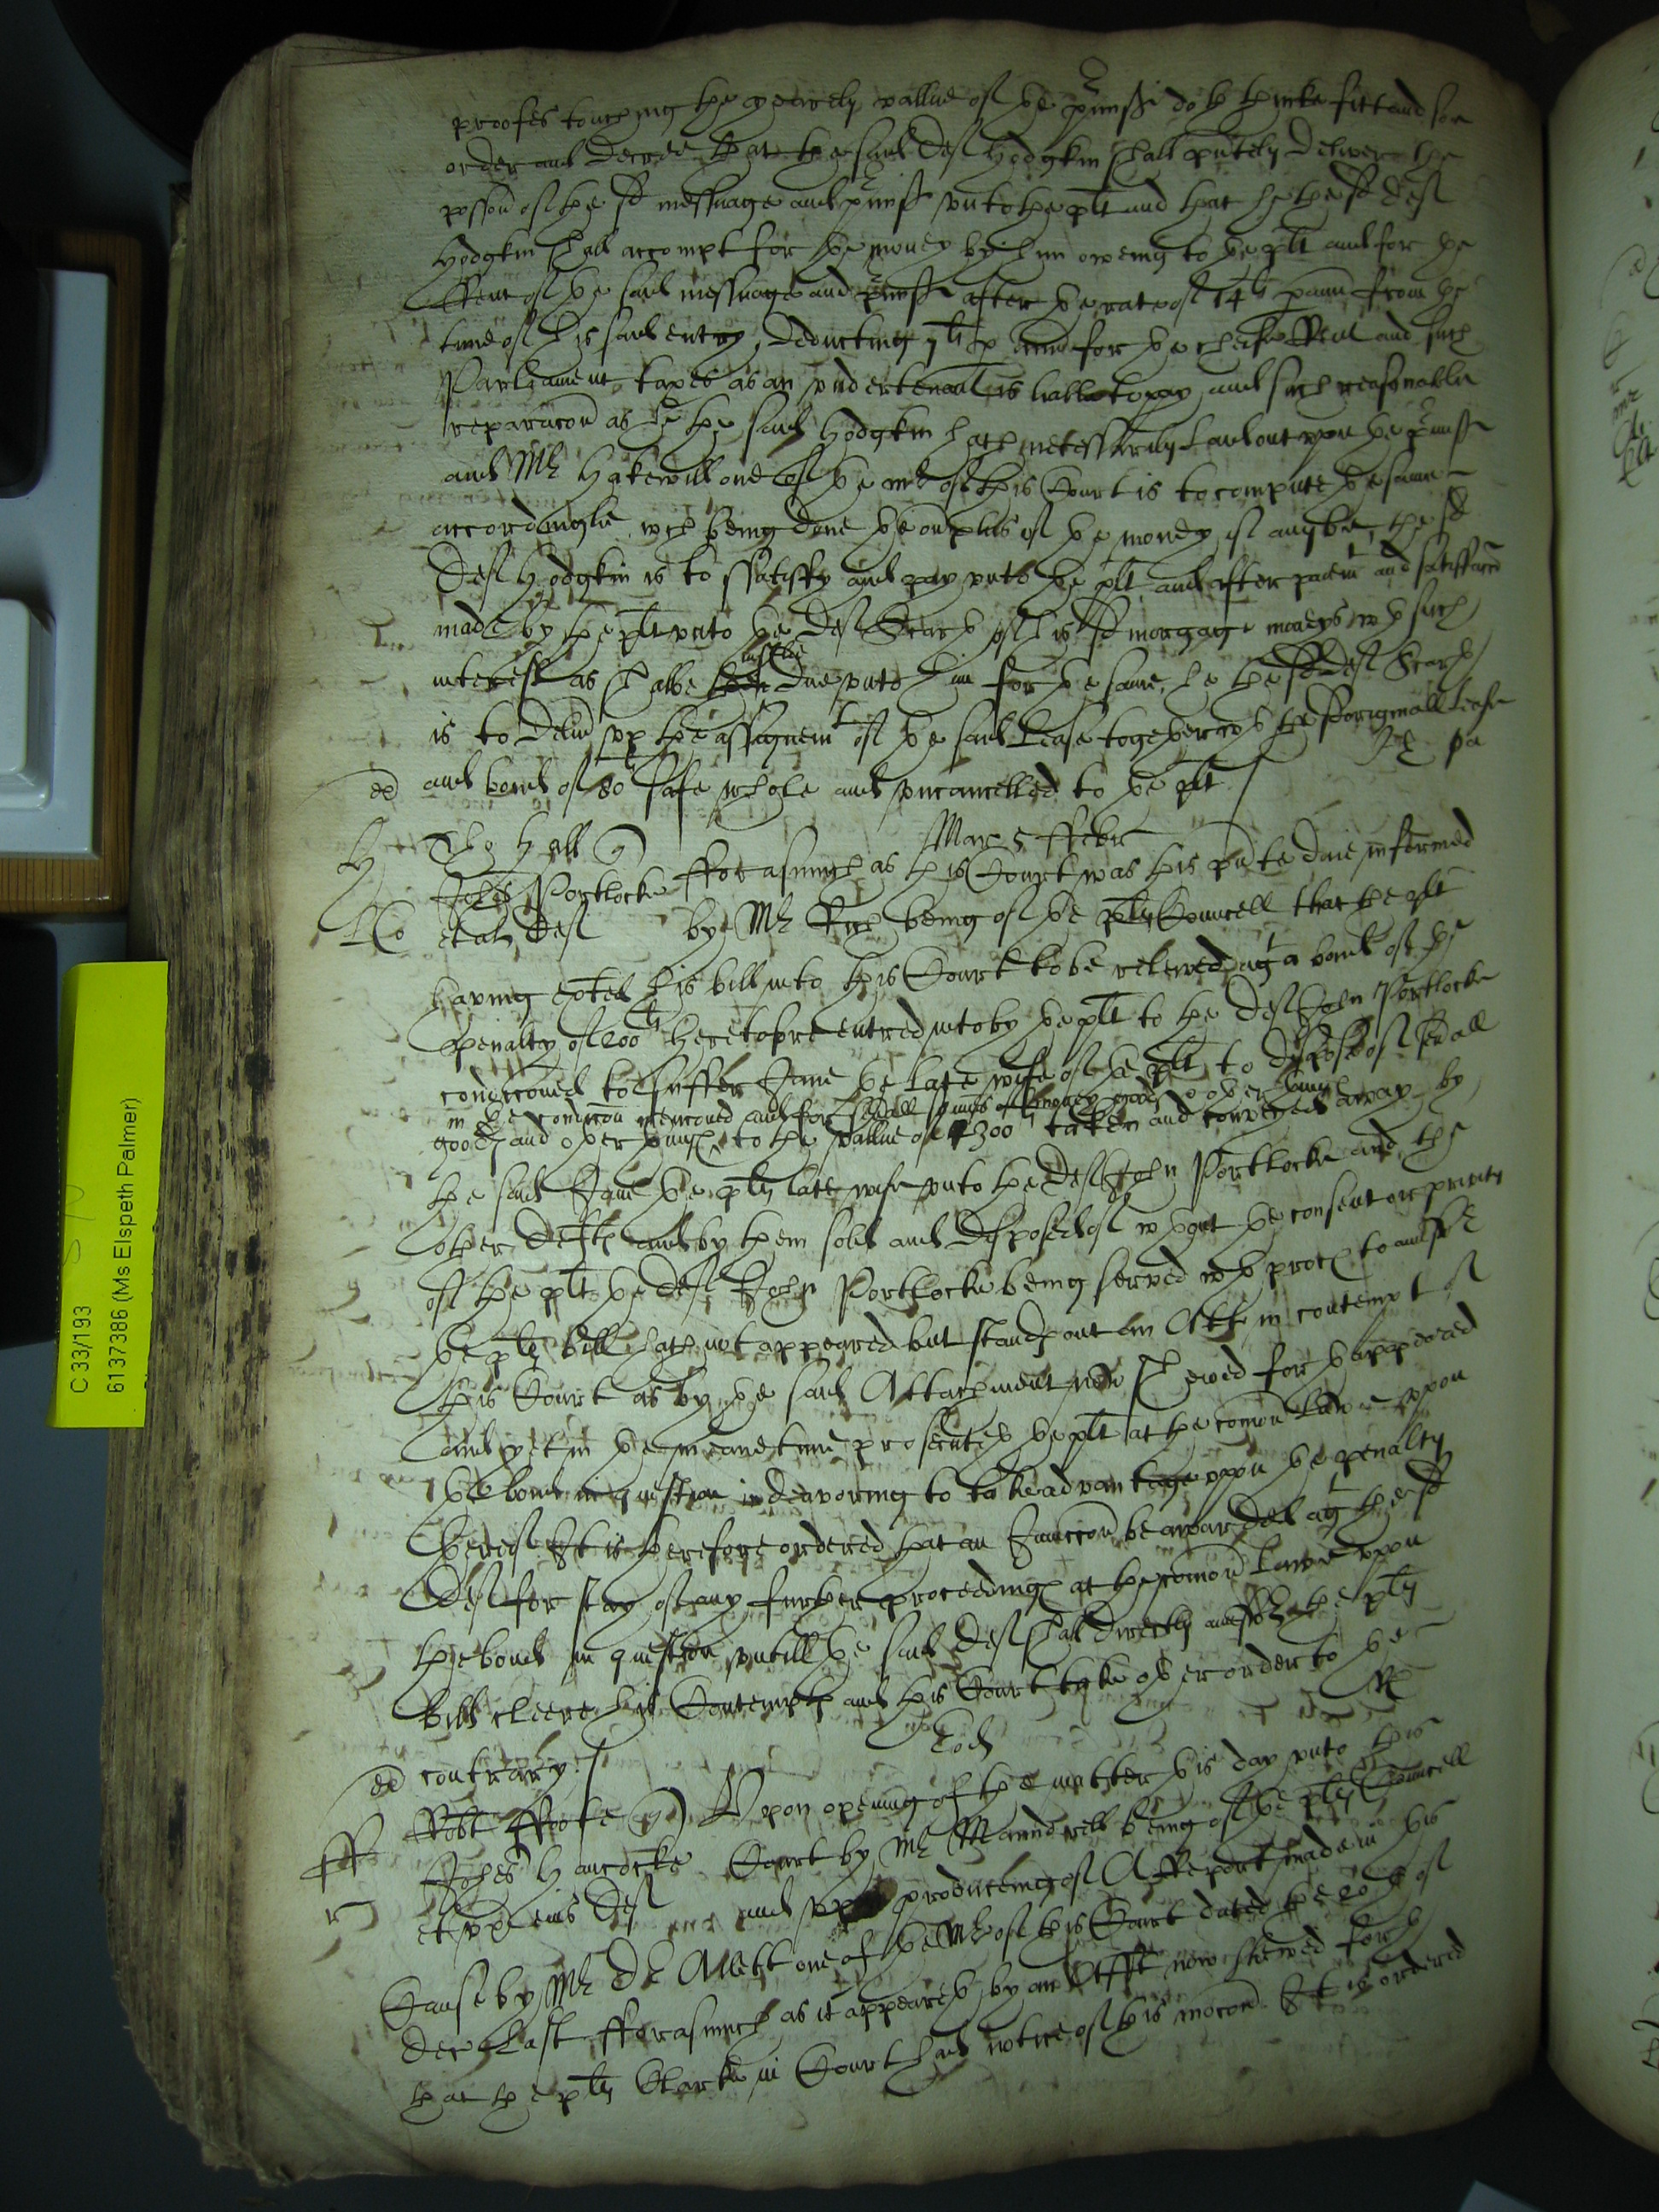 proofes touching the yearely vallue of ye pmiss doth thinke fitt and soe
order and decree that the said Deft Hodgkin shall pntely deliver the
posson of the sd messuage and pmiss unto the plt and that he the sd deft
Hodgkin shall accompt for the money by him oweing to ye plt and for the
Rent of ye said messuage and pmiss after ye rate of 14li p ann from the
time of his said entry, deducting li p ann for ye cheife Rent and such
Parliament taxes as an undertenant is liable to pay and such reasonable
reparacon as he the said Hodgkin hath necessarily laid out upon the pmiss
and Mr Hakewill one of ye mrs of this Court is to compute the same
accordinglie wch being done ye ourplus of ye money if any be, the sd
Deft Hodgkin is to sattisfy and pay unto the plt, and after paiemt and satisfaccon
made by the plt unto ye Deft of his sd morgage moneys wth such
interest as shalbe justlie due unto him for ye same, he the sd Deft
is to deliver up the assignemt of ye said Lease together wth the originall lease
and bond of 80li safe whole and uncancelled to ye plt
Mar 5 ffebr
Tho Hall q
John Portlocke
et al Deft
fforasmuch as this Court was this pnte daie informed
by Mr Rich being of ye plts Councell that the plt
having exhted his bill into this Court to be releived agt a bond of the
penalty of 200li heretofore entred into by ye plt to the Deft John Portlocke
condiconed to suffer Jane ye late wife of ye plt to dispose of sevall
in the condicon mencioned and for sevall sumes of money goods & other things
goods and other things to the vallue of 300li taken and conveyed away by
the said Jane ye plts late wife unto the Deft John Portlocke and the
other Defts and by them sold and disposed of wthout ye consent or privity
of the plt ye deft John Portlocke being served wth proces to answer
ye plts bill hath not appeared but stands out an Attt in contempt of
this Court as by ye said Attachment now shewed forth appeared
and yet in ye meane time prosecuteth ye plt at the comon Lawe upon
ye bond in question indeavoring to take advantage upon ye penalty
thereof It is therefore ordered that an Iniunccon be awarded agt the sd
Deft for stay of any further proceedings at the comon Lawe upon
the bond in question untill ye said Deft shall directly answer the plts
bill cleere his Contempts and this Court take other order to ye
contrary
Eod
Robt ffoote q
Johes Hancocke
et ux eius Deft
Upon opening of the matter this day unto this
Court by Mr Maundrell being of ye plts Councell
and upon produceing of A Report made in this
Cause by Mr Dr Allett one of ye Mrs of this Court dated the 20th of
Decr last fforasmuch as it appeareth by an Afft now shewed forth
that the plts Clarke in Court had notice of this mocon It is ordered
C 33/193
6137386 (Ms Elspeth Palmer)